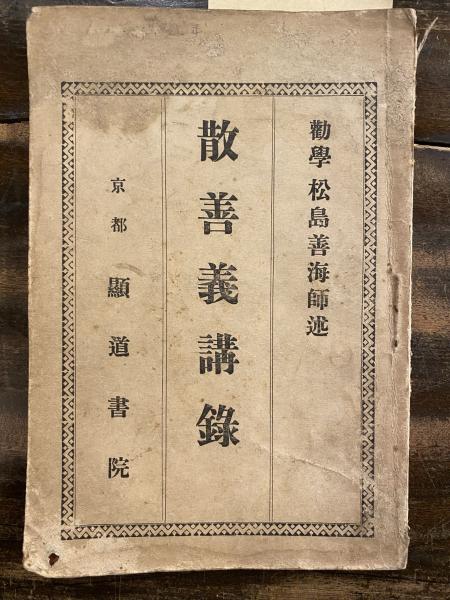 勸學 松島善海師述
散善義講錄
京都 顯道書院